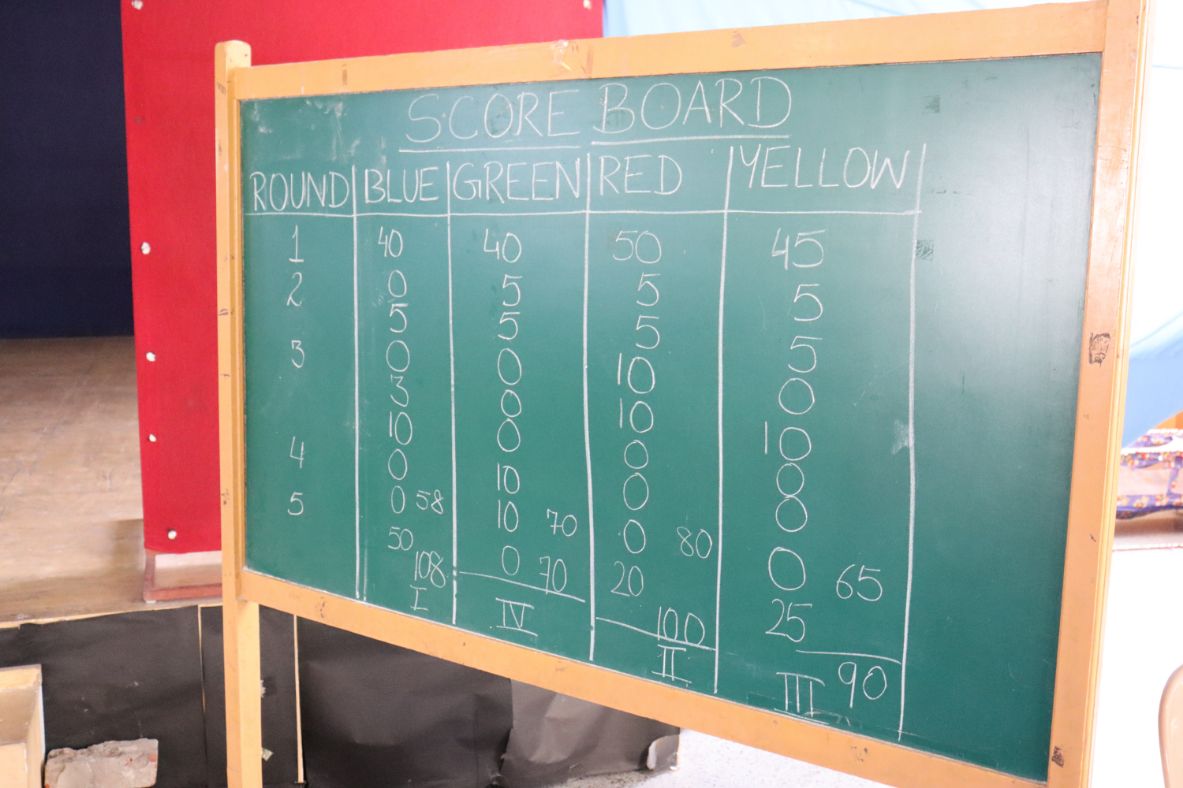 SCORE BOARD
ROUND BLUE GREEN RED YELLOW
1 40 40 50 45
2 0 5 5 5
5 5 5 5
3 0 0 10 0
3 0 10 10
10 0 0 0
4 0 10 0 0
5 0 58 10 70 0 80 0 65
50 0 70 20 25
108 100 90
I IV II III